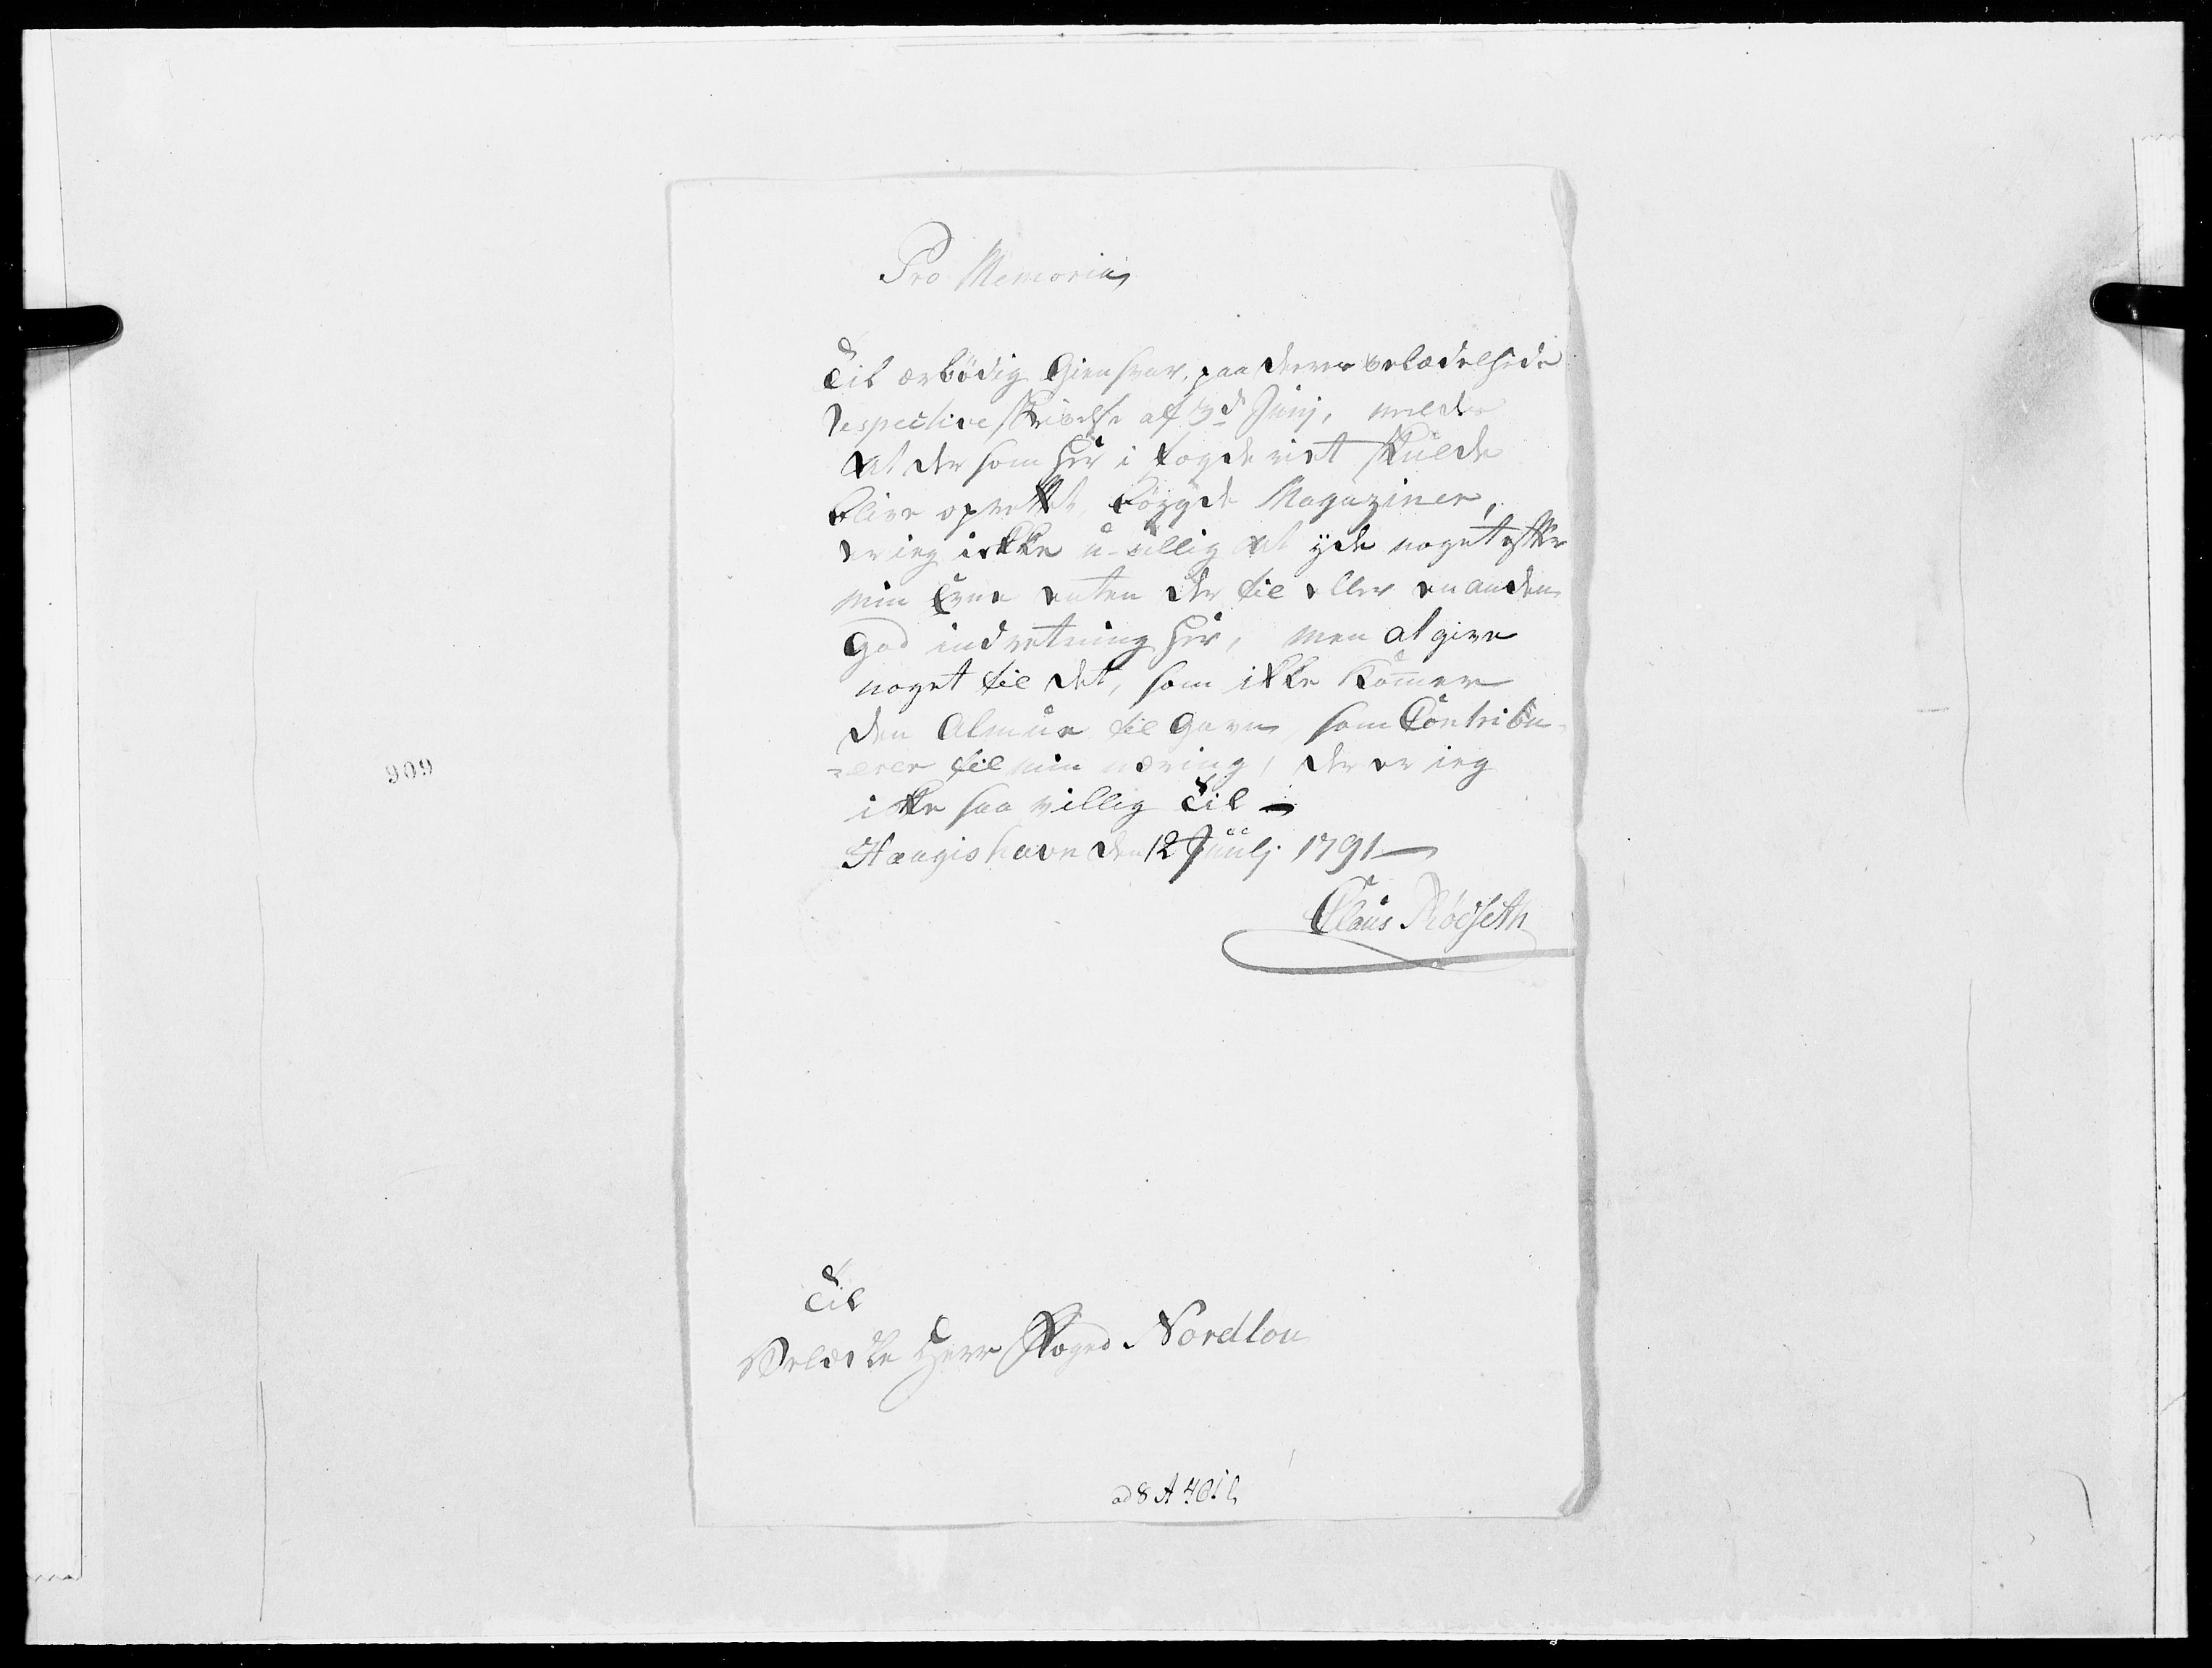 Pro Memoria
Til ærbödig Giensvar, paa deres velædelheds
respective skrivelse af 3d Junj, melder
at der som her i Fogderiet skulde
blive oprettet böygde Magaziner,
er ieg ikke u-villig at yde noget efter
min Evne enten der til eller en anden
god indretning her, men at give
noget til det, som ikke kommer
den Almue til Gavn, som Contribu-
-erer til min næring, der er ieg
ikke saa villig Til -
Haugishavn den 12 Juulj 1791
Claus Rödseth
Til
Velædle Herr Foged Nordlou
ad 8 A
909